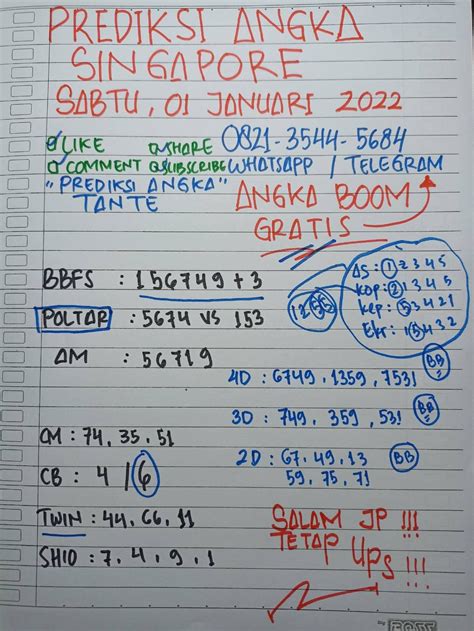 PREDIKSI ANGKA
SINGAPORE
SABTU, 01 JANUARI 2022
LIKE SHARE 0821-3544-5684
COMMENT SUBSCRIBE WHATSAPP / TELEGRAM
"PREDIKSI ANGKA" ANGKA BOOM
TANTE GRATIS
BBFS : 156749 + 3
POLTAR : 5674 VS 153
AM : 56719
AS : 1 2 3 4 5
KOP : 2 1 3 4 5
KEP : 5 3 4 2 1
EKR : 1 5 4 3 2
4D : 6749, 1359, 7531 BB
3D : 749, 359, 531 BB
CM : 74, 35, 51
2D : 67, 49, 13 BB
59, 75, 71
CB : 4 / 6
TWIN : 44, 66, 11
SHIO : 7, 4, 9, 1
SALAM JP !!!
TETAP UPS !!!